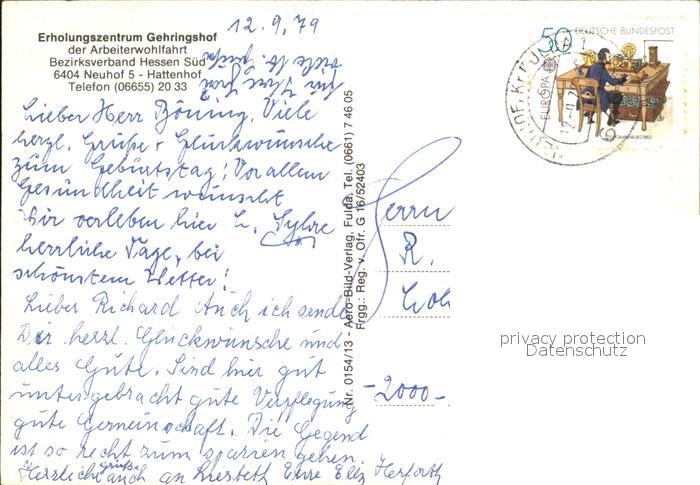 12.9.79
Erholungszentrum Gehringshof
der Arbeiterwohlfahrt
Bezirksverband Hessen Süd
6404 Neuhof 5 - Hattenhof
Telefon (06655) 20 33
viele h. Grüße
für Ihre Frau
Lieber Herr Böning, Viele
herzl. Grüße + Glückwünsche
zum Geburtstag; Vor allem
Gesundheit wünscht
Wir verleben hier
herrliche Tage, bei
schönstem Wetter!
Lieber Richard Auch ich sende
Dir herzl. Glückwünsche und
alles Gute. Sind hier gut
untergebracht gute Verpflegung
gute Gemeinschaft. Die Gegend
ist so recht zum spazieren gehen.
Herzliche Grüße auch an Liesbeth Eure Elly Herforth
Nr. 0154/13 - Aero-Bild-Verlag, Fulda, Tel. (0661) 7 46 05
Frgg.: Reg. v. Ofr. G 16/52403
Herrn
R.
-2000-
50 DEUTSCHE BUNDESPOST
EUROPA
privacy protection
Datenschutz